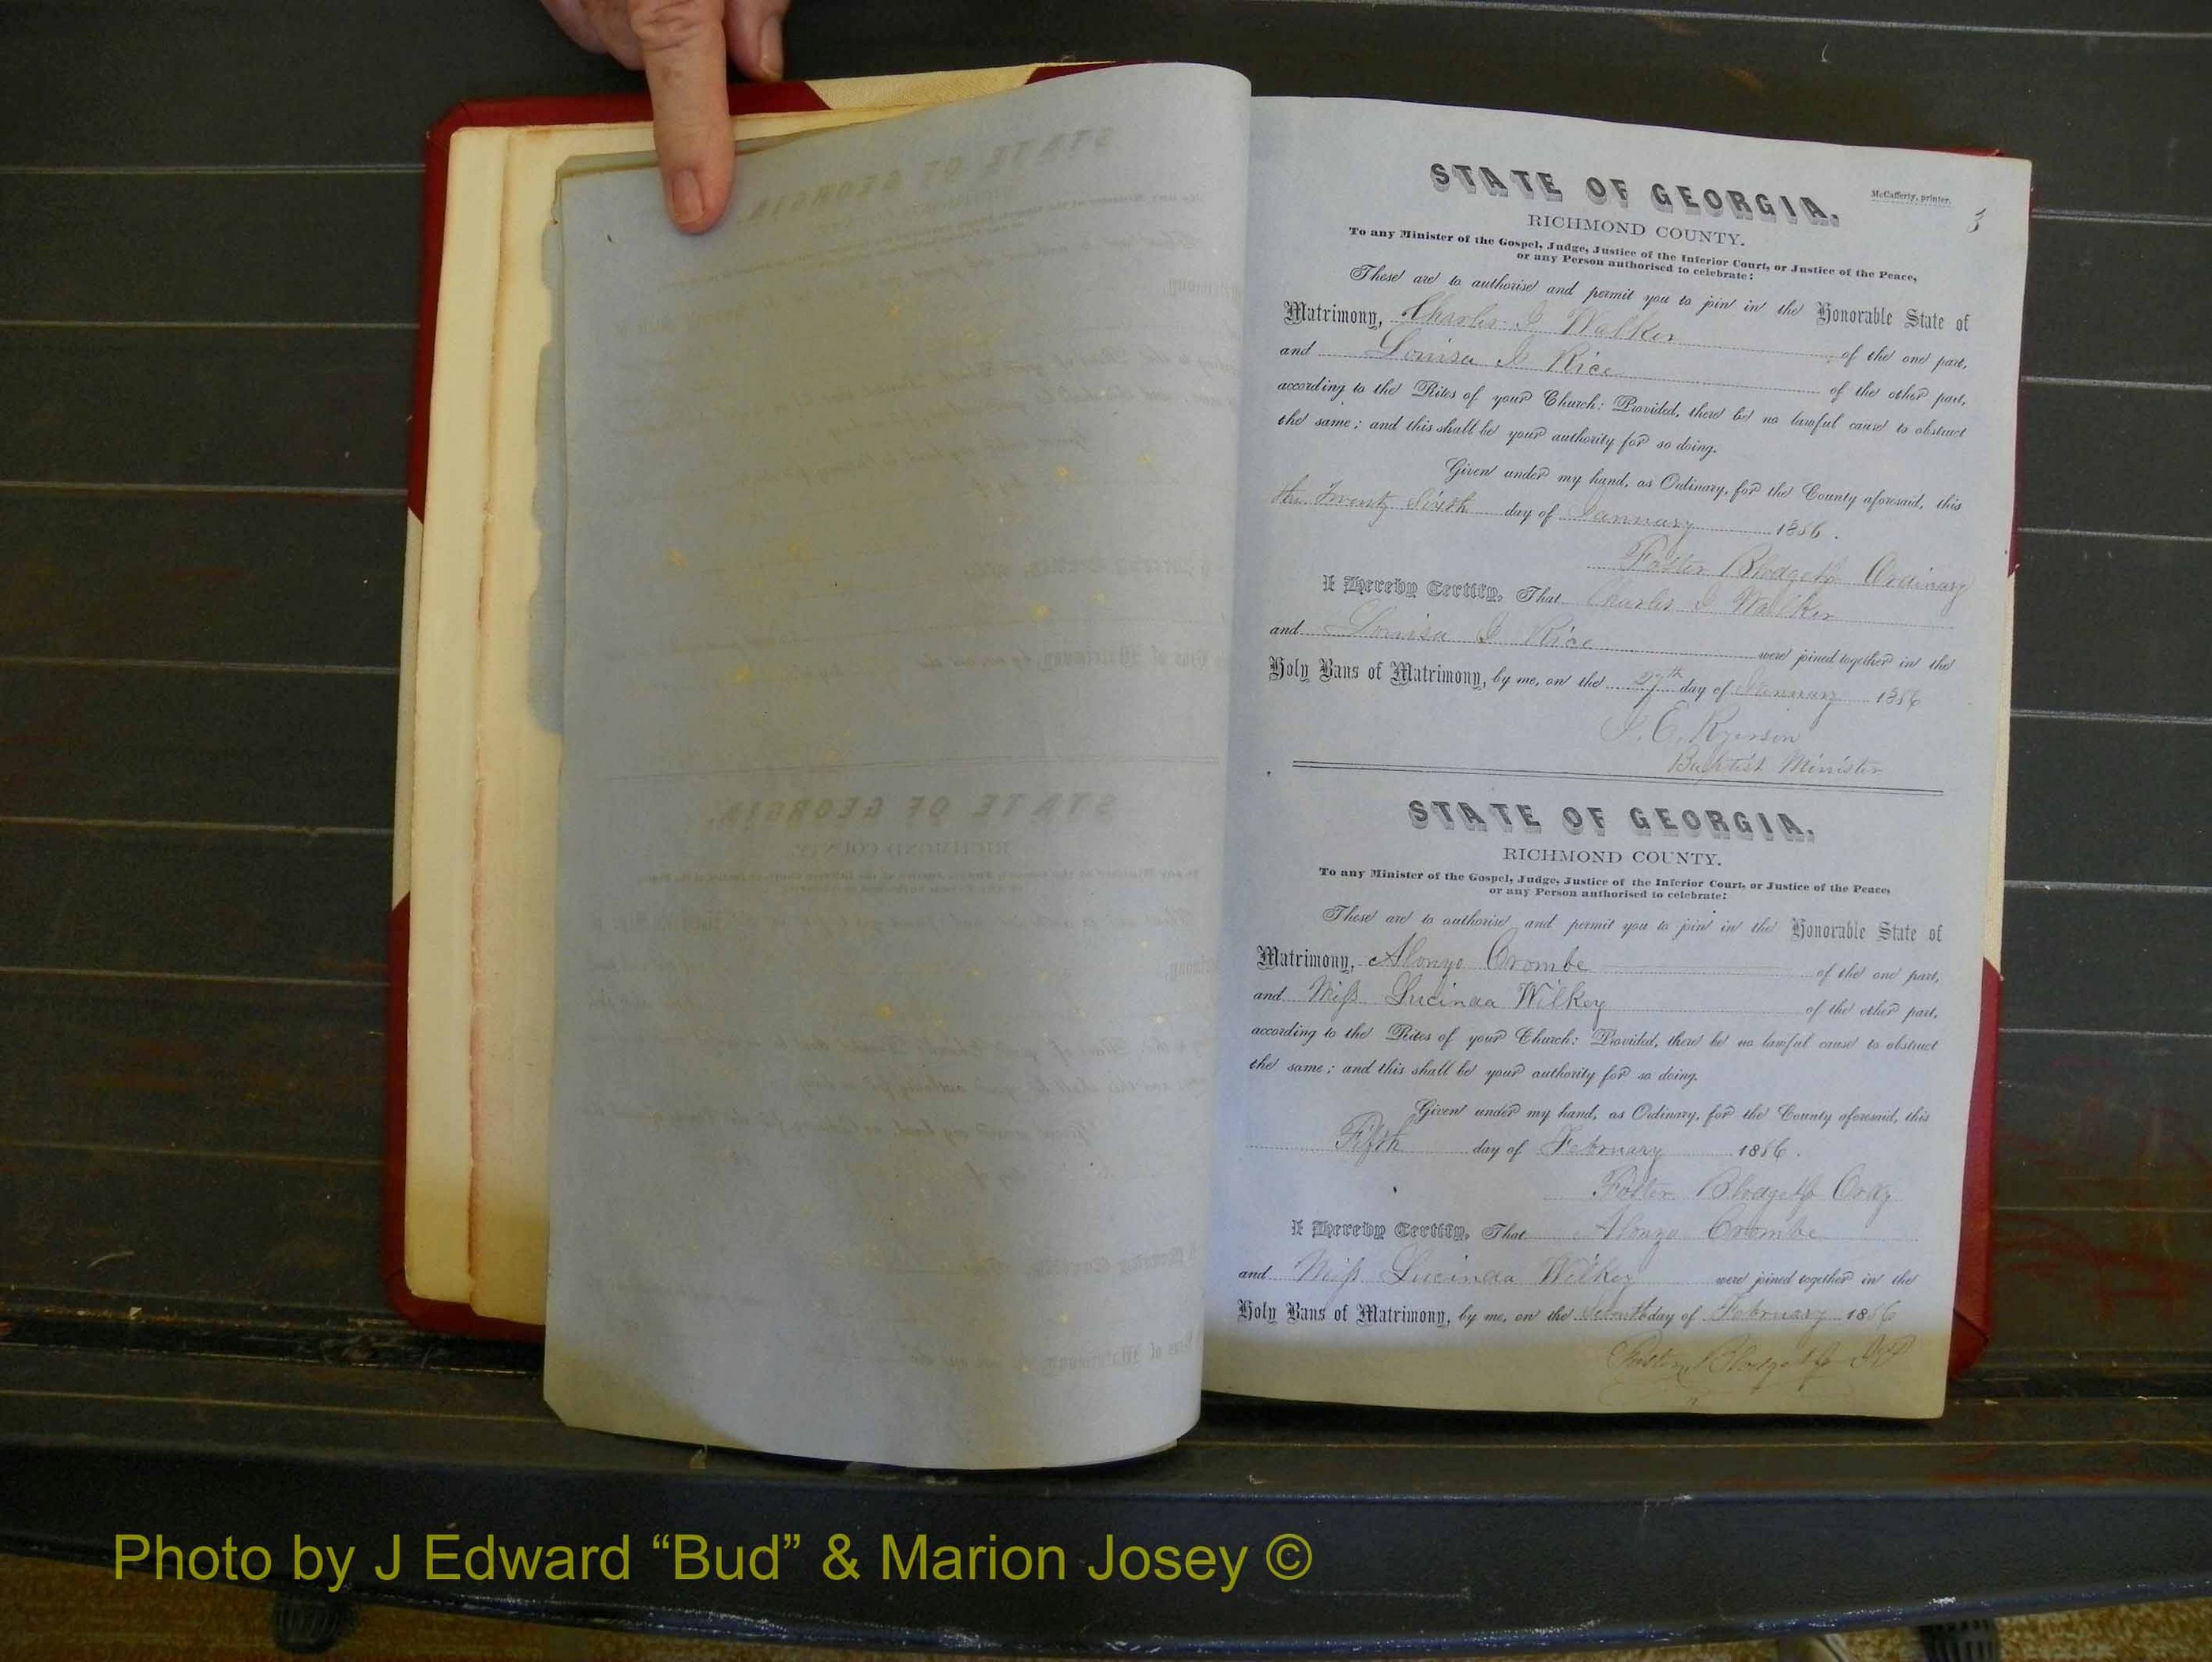 McCafferty, printer.
3
STATE OF GEORGIA,
RICHMOND COUNTY.
To any Minister of the Gospel, Judge, Justice of the Inferior Court, or Justice of the Peace,
or any Person authorised to celebrate:
These are to authorise and permit you to join in the Honorable State of
Matrimony, Charles J Walker of the one part,
and Louisa J Rice of the other part,
according to the Rites of your Church: Provided, there be no lawful cause to obstruct
the same; and this shall be your authority for so doing.
Given under my hand, as Ordinary, for the County aforesaid, this
the Twenty Sixth day of January 1856.
Foster Blodgett Ordinary
I Hereby Certify, That Charles J Walker
and Louisa J Rice were joined together in the
Holy Bans of Matrimony, by me, on the 27th day of January 1856
J. E. Ryerson
Baptist Minister
STATE OF GEORGIA,
RICHMOND COUNTY.
To any Minister of the Gospel, Judge, Justice of the Inferior Court, or Justice of the Peace,
or any Person authorised to celebrate:
These are to authorise and permit you to join in the Honorable State of
Matrimony, Alonzo Crombe of the one part,
and Miss Lucinda Wilkey of the other part,
according to the Rites of your Church: Provided, there be no lawful cause to obstruct
the same; and this shall be your authority for so doing.
Given under my hand, as Ordinary, for the County aforesaid, this
Fifth day of February 1856.
Foster Blodgett Ordy
I Hereby Certify, That Alonzo Crombe
and Miss Lucinda Wilkey were joined together in the
Holy Bans of Matrimony, by me, on the Seventh day of February 1856
Foster Blodgett JP
Photo by J Edward “Bud” & Marion Josey ©